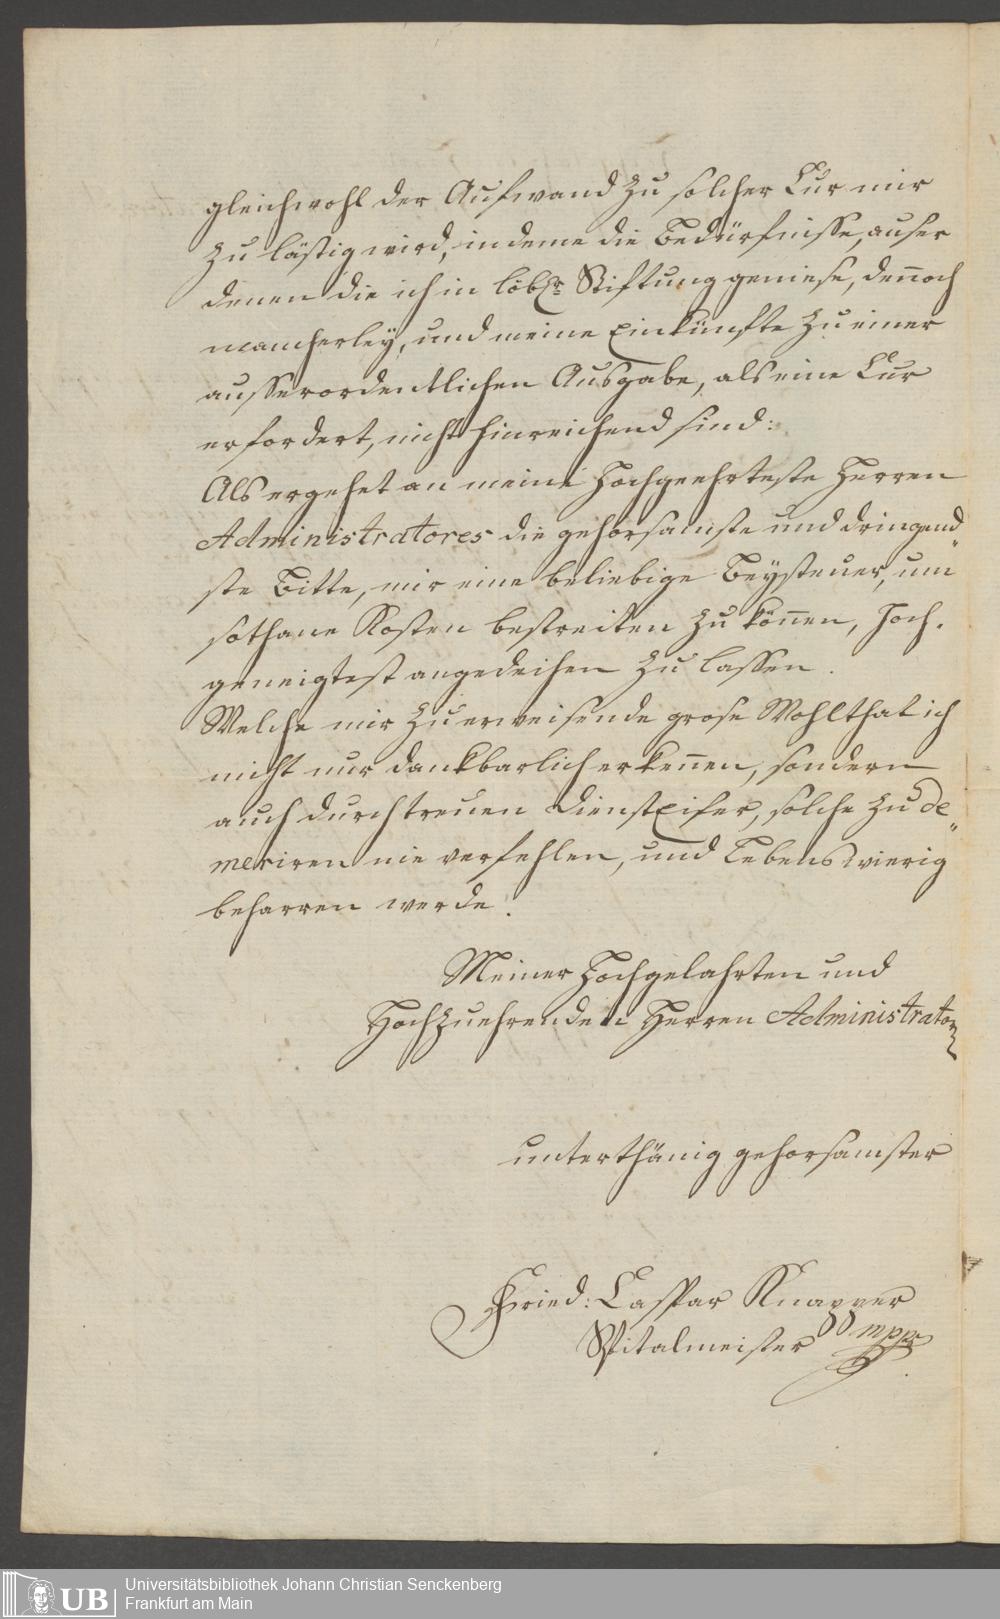 gleichwohl der Aufwand zu solcher Cur mir
zu lästig wird, indeme die Bedürfnisse, auser
denen die ich in löbl. Stiftung geniese, den̅och
mancherley, und meine Einkünfte zu einer
ausserordentlichen Ausgabe, als eine Cur
erfordert, nicht hinreichend sind:
Als ergehet an meine Hochgeehrteste Herren
Administratores die gehorsamste und dringend„
ste Bitte, mir eine beliebige Beysteuer, um
sothane Kosten bestreiten zu kön̅en, Hoch.
geneigtest angedeihen zu lassen.
Welche mir zu erweisende grose Wohlthat ich
nicht nur dankbarlich erken̅en, sondern
auch durch treuen Diensteifer, solche zu de„
meriren nie verfehlen, und Lebenswierig
beharren werde.
Meiner Hochgelahrten und
Hochzuehrenden Herren Administrator
unterthänig gehorsamster
Fried: Caspar Knapper
Spitalmeister mppr
Universitätsbibliothek Johann Christian Senckenberg
Frankfurt am Main
UB